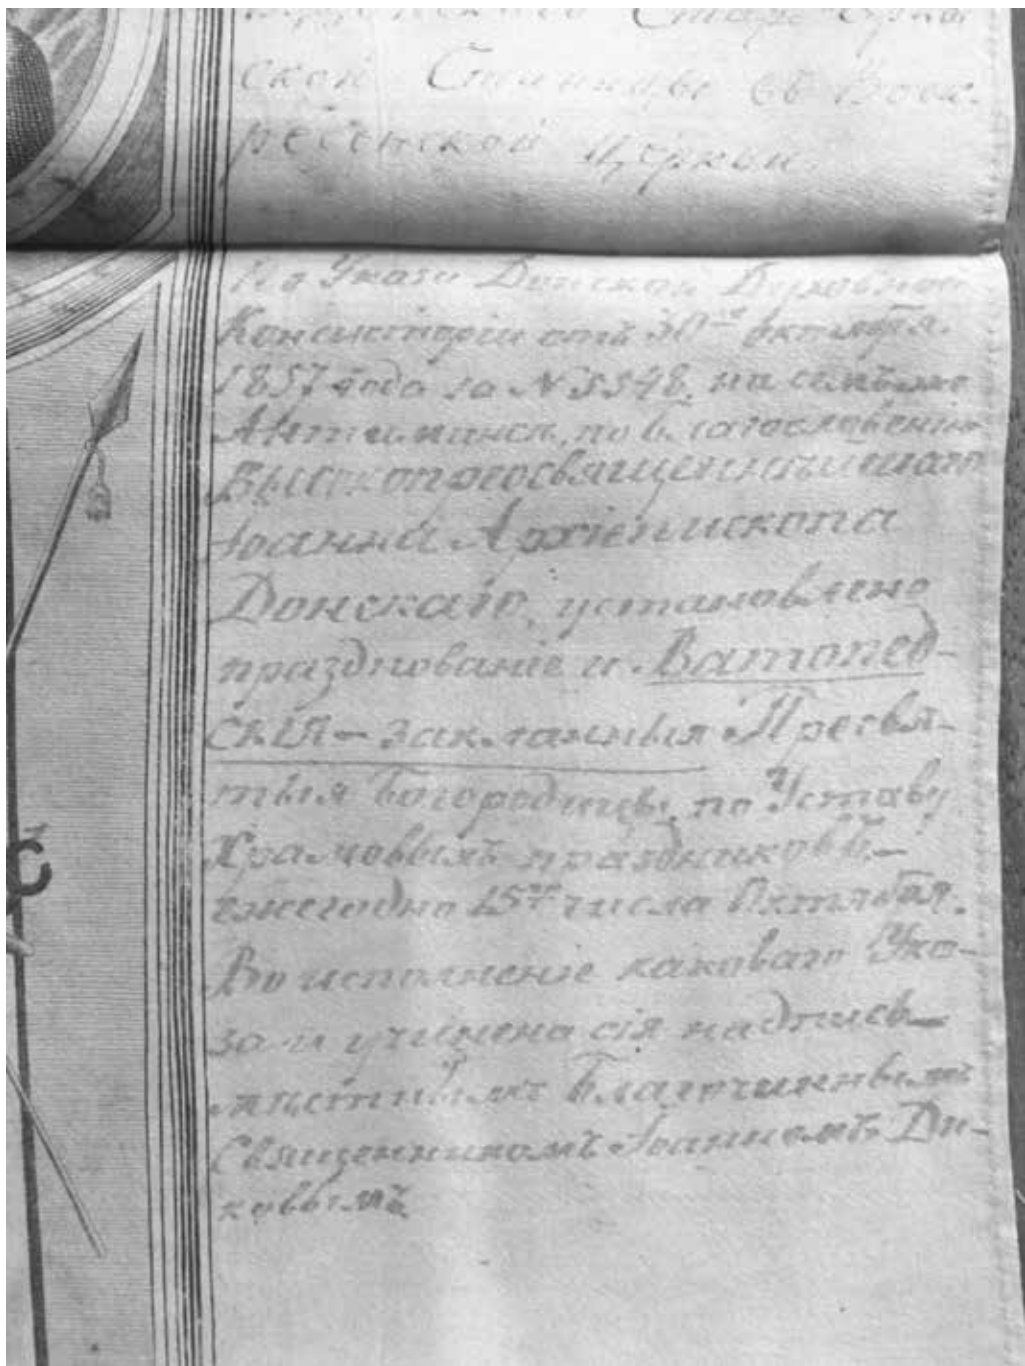 ской Станицы въ Воск-
ресенской Церкви.
По Указу Донской Духовной
Консисторіи отъ 30го Октября
1857 года за N 5548, на семъ
Антиминсѣ, по благословенію
Высокопреосвященнѣйшаго
Іоанна Архіепископа
Донскаго, установлено
празднованіе и Ватопед-
скія - закланныя Пресвя-
тыя Богородицы, по Уставу
Храмовыхъ праздниковъ. -
ежегодно 15го числа Октября.
Во исполненіе каковаго Ука-
за и учинена сія надпись -
мѣстнымъ Благочиннымъ
Священникомъ Іоанномъ Ди-
ковымъ
С